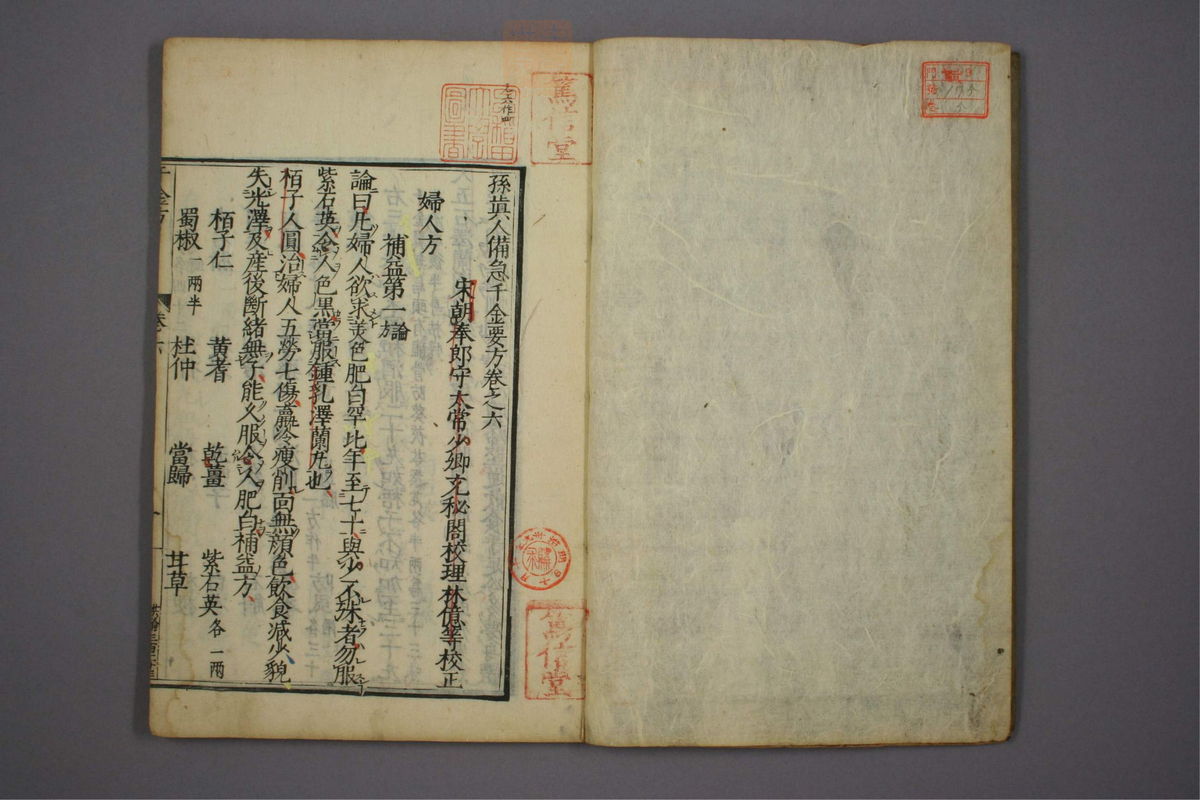 孫真人備急千金要方卷之六
宋朝奉郎守太常少卿充秘閣校理林億等校正
婦人方
補益第一論方
論曰凡婦人欲求美色肥白罕比年至七十與少不殊者勿服
紫石英令人色黑當服鍾乳澤蘭丸也
栢子人圓治婦人五勞七傷羸冷瘦削面無顏色飲食減少貌
失光澤及産後斷緒無子能久服令人肥白補益方
栢子仁 黄耆 乾薑 紫石英各一兩
蜀椒一兩半 杜仲 當歸 甘草
篤信堂
圖書
篤信堂